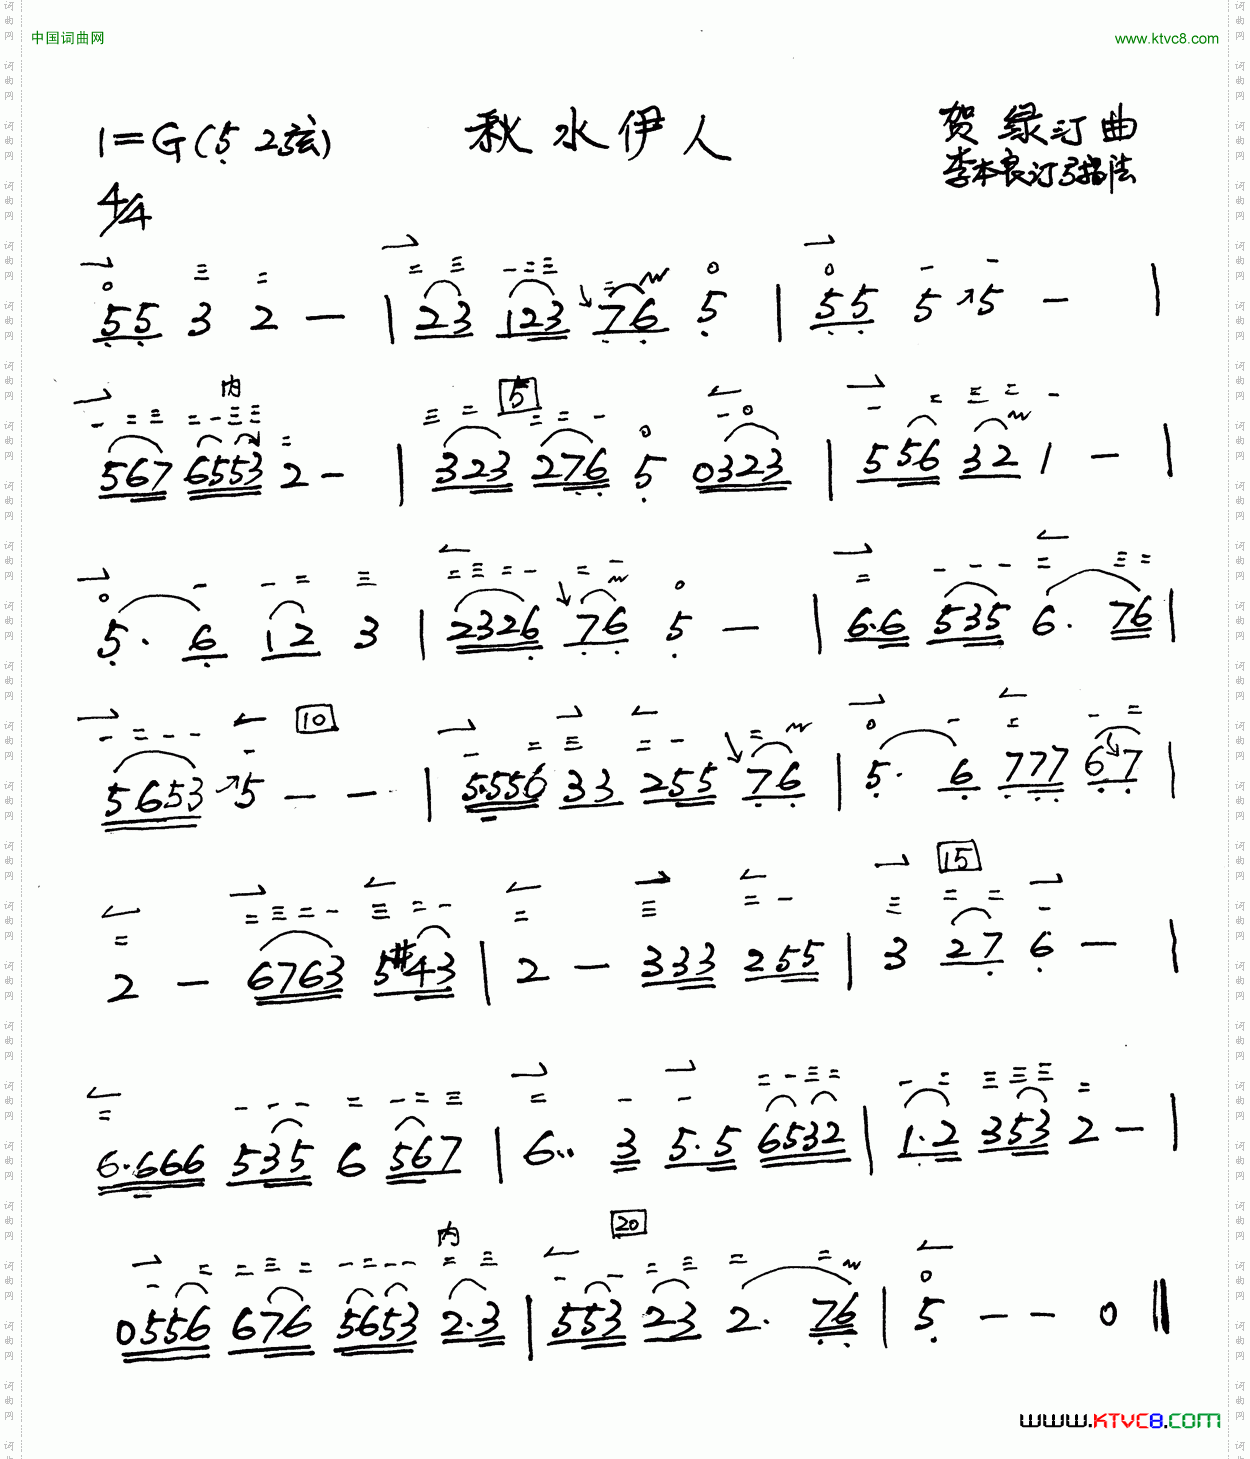 中国词曲网 www.ktvc8.com
1=G(5 2弦) 秋水伊人 贺绿汀曲
4/4 李本良订弓指法
55 3 2 — | 23 123 76 5 | 55 5 5 — |
内 5
567 6553 2 — | 323 276 5 0323 | 556 32 1 — |
5· 6 12 3 | 2326 76 5 — | 6·6 535 6· 76 |
10
5653 5 — — | 5·556 33 255 76 | 5· 6 777 67 |
15
2 — 6763 5#43 | 2 — 333 255 | 3 27 6 — |
6·666 535 6 567 | 6·· 3 5·5 6532 | 1·2 353 2 — |
内 20
0556 676 5653 2·3 | 553 23 2· 76 | 5 — — 0 ‖
www.KTVC8.com